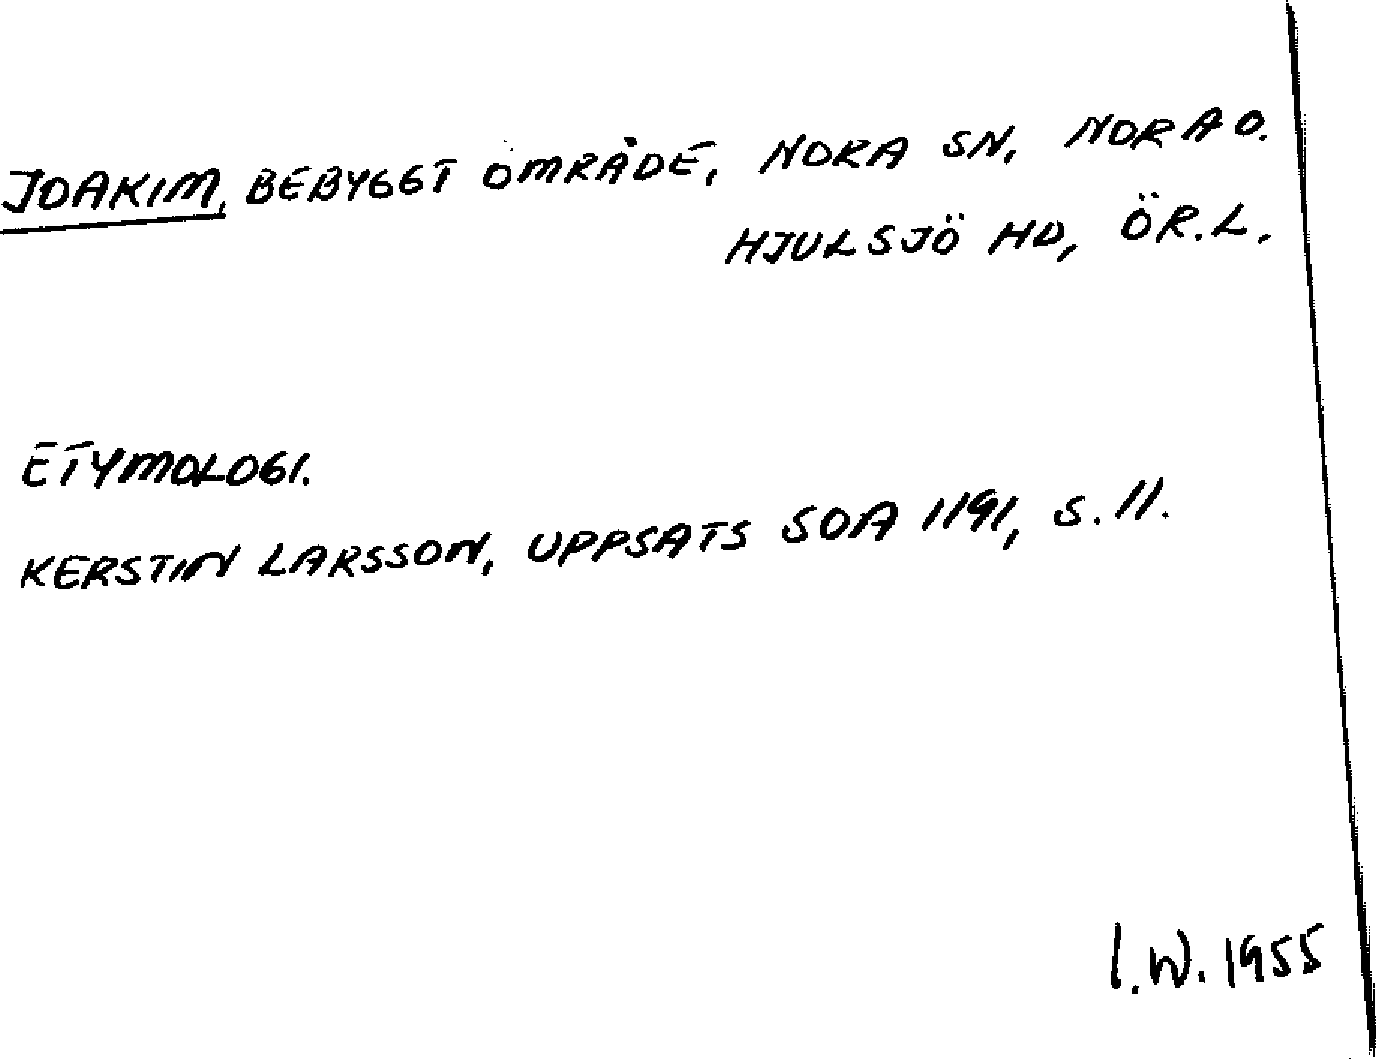 JOAKIM, BEBYGGT OMRÅDE, NORA SN, NORA O.
HJULSJÖ HD, ÖR.L.
ETYMOLOGI.
KERSTIN LARSSON, UPPSATS SOA 1191, S. 11.
I.W. 1955